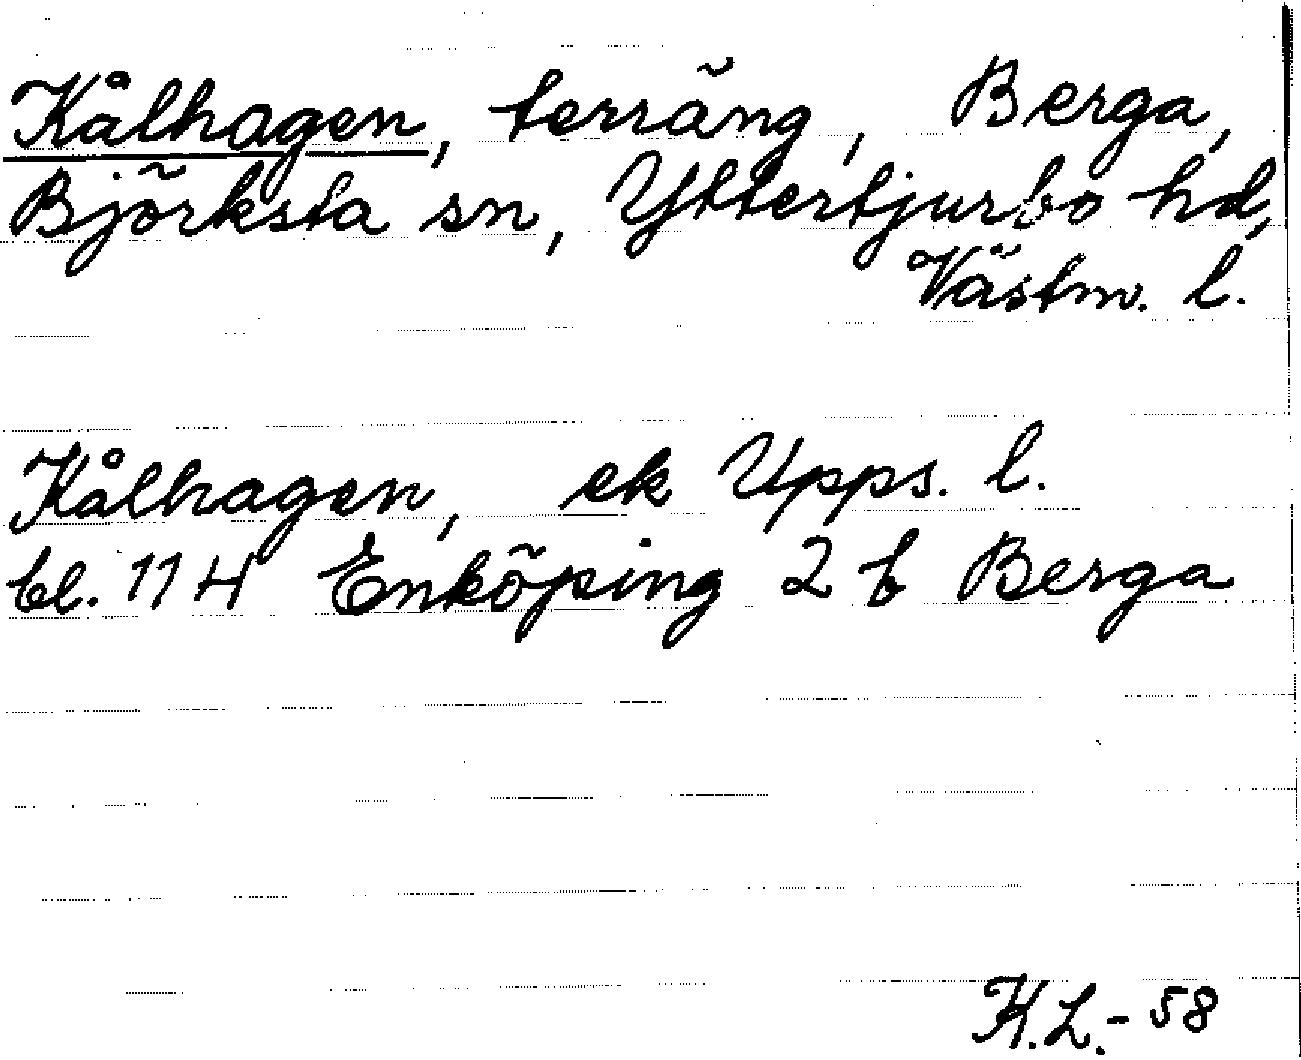 Kålhagen, terräng, Berga,
Björksta sn, Yttertjurbo hd,
Västm. l.
Kålhagen, ek Upps. l.
bl. 114 Enköping 2 b Berga
K.L.- 58